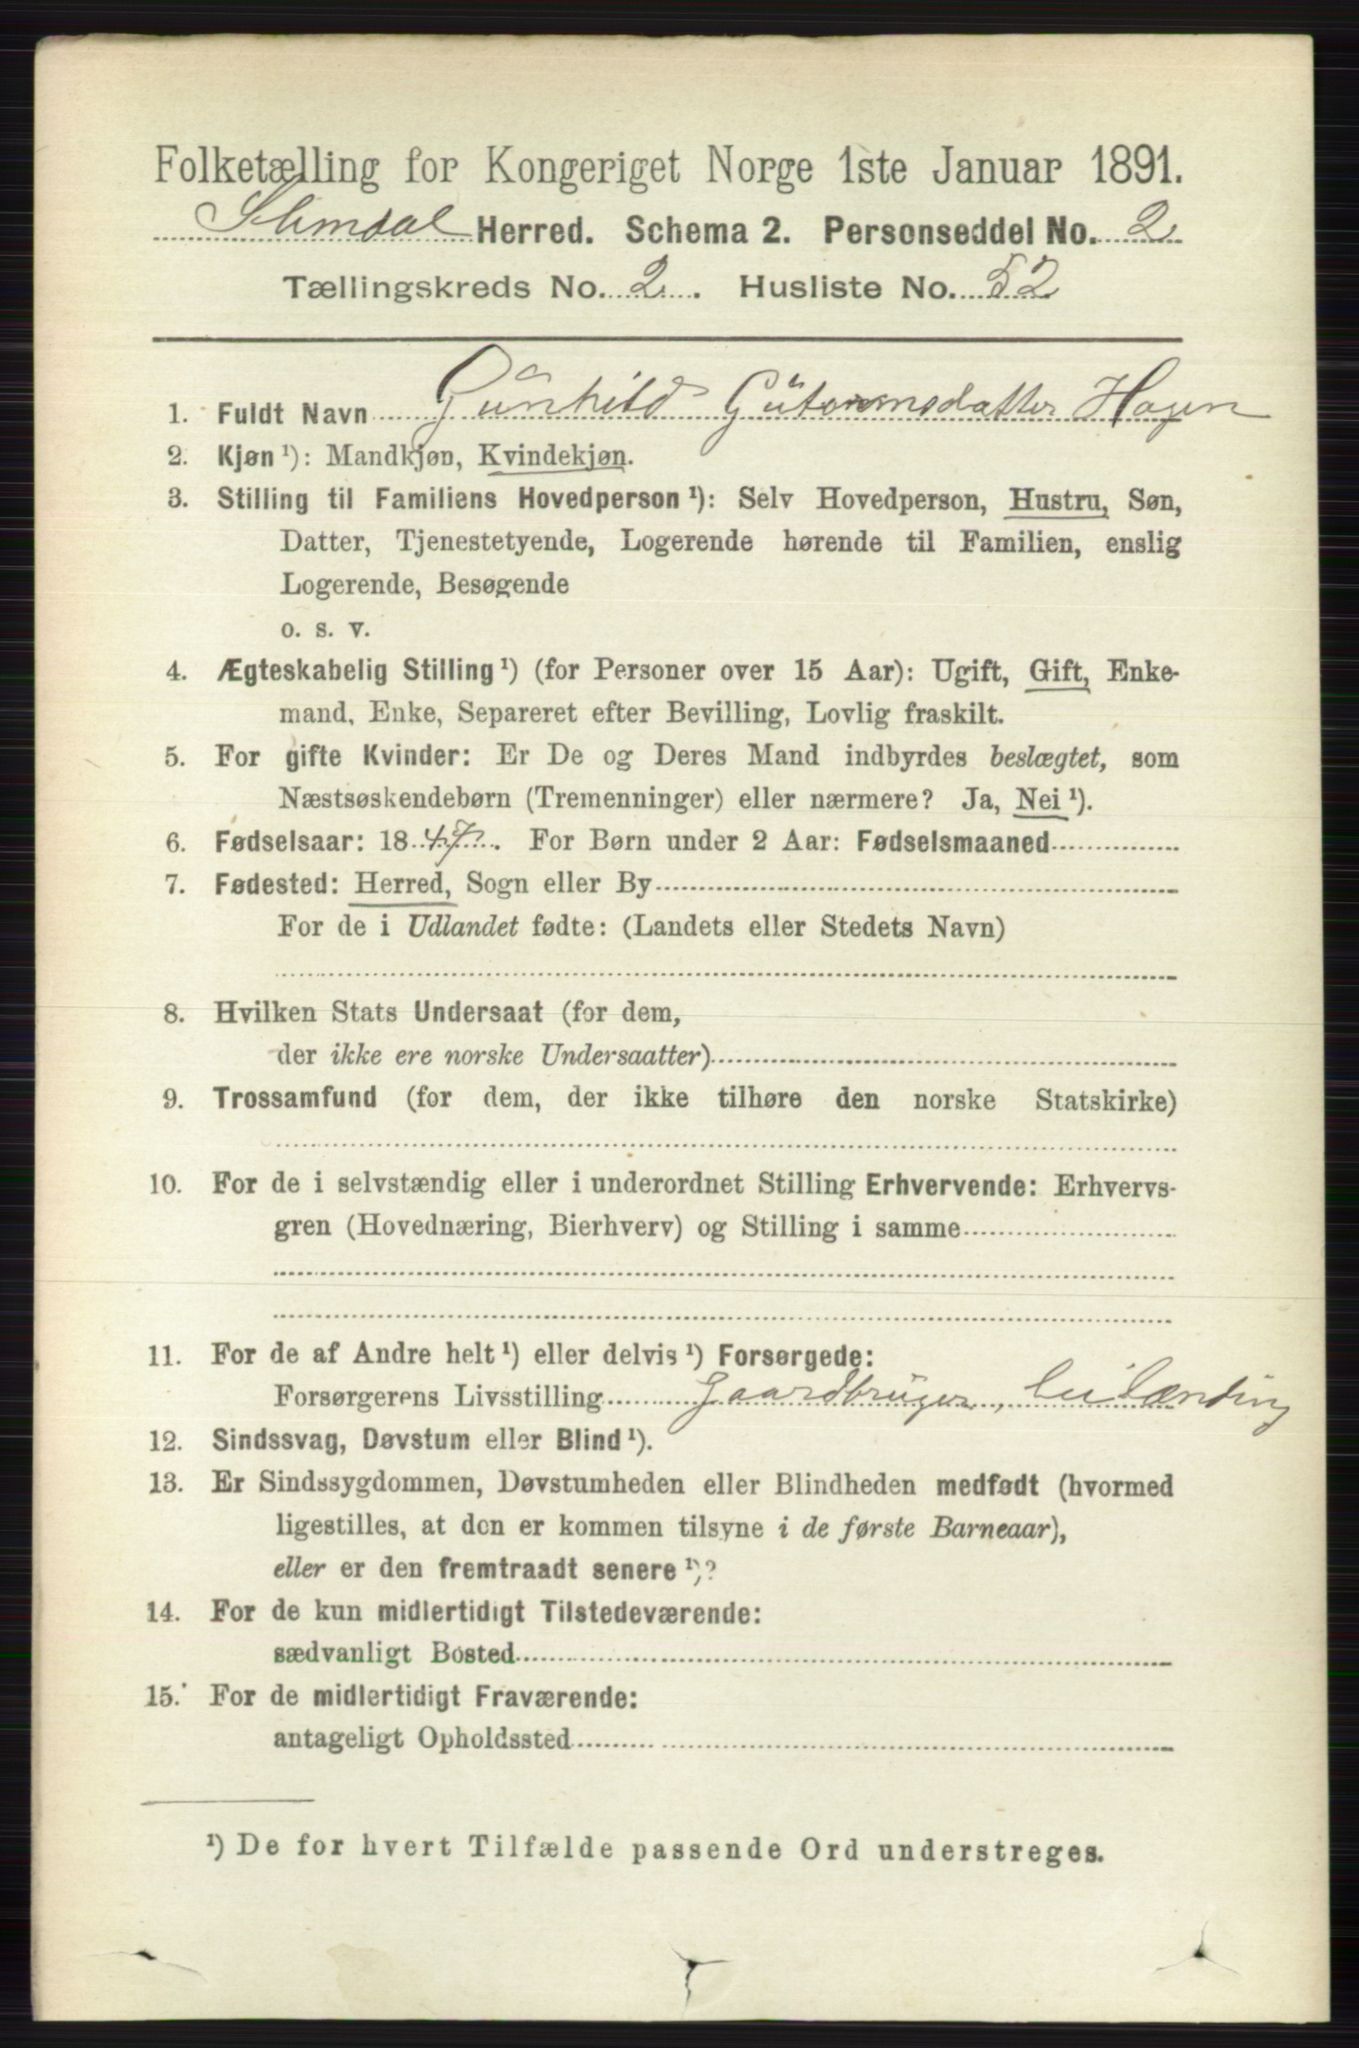 Folketælling for Kongeriget Norge 1ste Januar 1891.
Slemdal Herred. Schema 2. Personseddel No. 2
Tællingskreds No. 2. Husliste No. 52
1. Fuldt Navn Gunhild Gutormsdatter Hagen
2. Kjøn ¹): Mandkjøn, Kvindekjøn.
3. Stilling til Familiens Hovedperson ¹): Selv Hovedperson, Hustru, Søn,
Datter, Tjenestetyende, Logerende hørende til Familien, enslig
Logerende, Besøgende
o. s. v.
4. Ægteskabelig Stilling ¹) (for Personer over 15 Aar): Ugift, Gift, Enke-
mand, Enke, Separeret efter Bevilling, Lovlig fraskilt.
5. For gifte Kvinder: Er De og Deres Mand indbyrdes beslægtet, som
Næstsøskendebørn (Tremenninger) eller nærmere? Ja, Nei ¹).
6. Fødselsaar: 1847. For Børn under 2 Aar: Fødselsmaaned
7. Fødested: Herred, Sogn eller By
For de i Udlandet fødte: (Landets eller Stedets Navn)
8. Hvilken Stats Undersaat (for dem,
der ikke ere norske Undersaatter)
9. Trossamfund (for dem, der ikke tilhøre den norske Statskirke)
10. For de i selvstændig eller i underordnet Stilling Erhvervende: Erhvervs-
gren (Hovednæring, Bierhverv) og Stilling i samme
11. For de af Andre helt ¹) eller delvis ¹) Forsørgede:
Forsørgerens Livsstilling Gaardbruger, Leilænding
12. Sindssvag, Døvstum eller Blind ¹).
13. Er Sindssygdommen, Døvstumheden eller Blindheden medfødt (hvormed
ligestilles, at den er kommen tilsyne i de første Barneaar),
eller er den fremtraadt senere ¹)?
14. For de kun midlertidigt Tilstedeværende:
sædvanligt Bosted
15. For de midlertidigt Fraværende:
antageligt Opholdssted
¹) De for hvert Tilfælde passende Ord understreges.